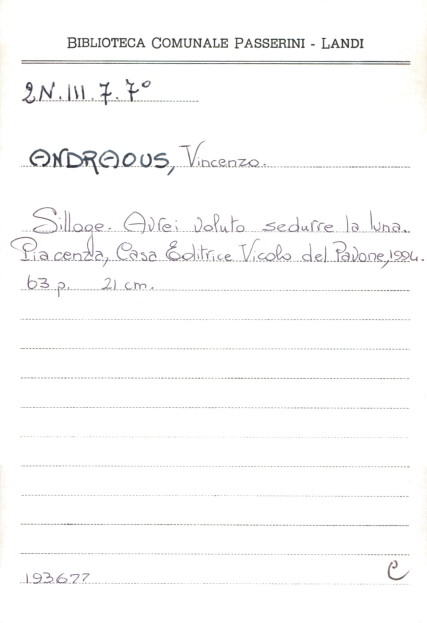 BIBLIOTECA COMUNALE PASSERINI - LANDI
2N.III.7.7°
ANDRAOUS, Vincenzo.
Silloge. Avrei voluto sedurre la luna.
Piacenza, Casa Editrice Vicolo del Pavone, 1994.
63 p. 21 cm.
193677
C